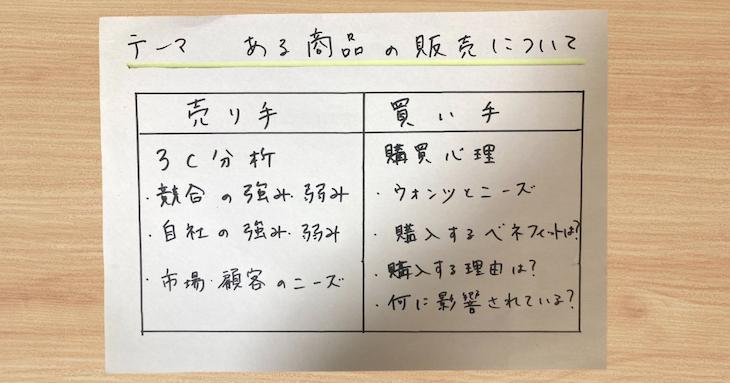 テーマ ある商品の販売について
売り手
3C分析
・競合の強み・弱み
・自社の強み・弱み
・市場・顧客のニーズ
買い手
購買心理
・ウォンツとニーズ
・購入するベネフィットは?
・購入する理由は?
・何に影響されている?